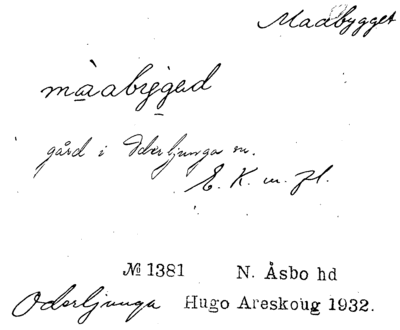 Maabygget
màabyged
gård i Oderljunga sn.
E. K. m. fl.
№ 1381 N. Åsbo hd
Oderljunga Hugo Areskoug 1932.